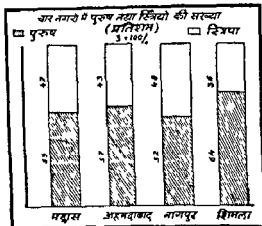 चार नगरों में पुरुष तथा स्त्रियों की संख्या
(प्रतिशत)
पुरुष स्त्रियां
47 43 48 36
53 57 52 64
मद्रास अहमदाबाद नागपुर शिमला